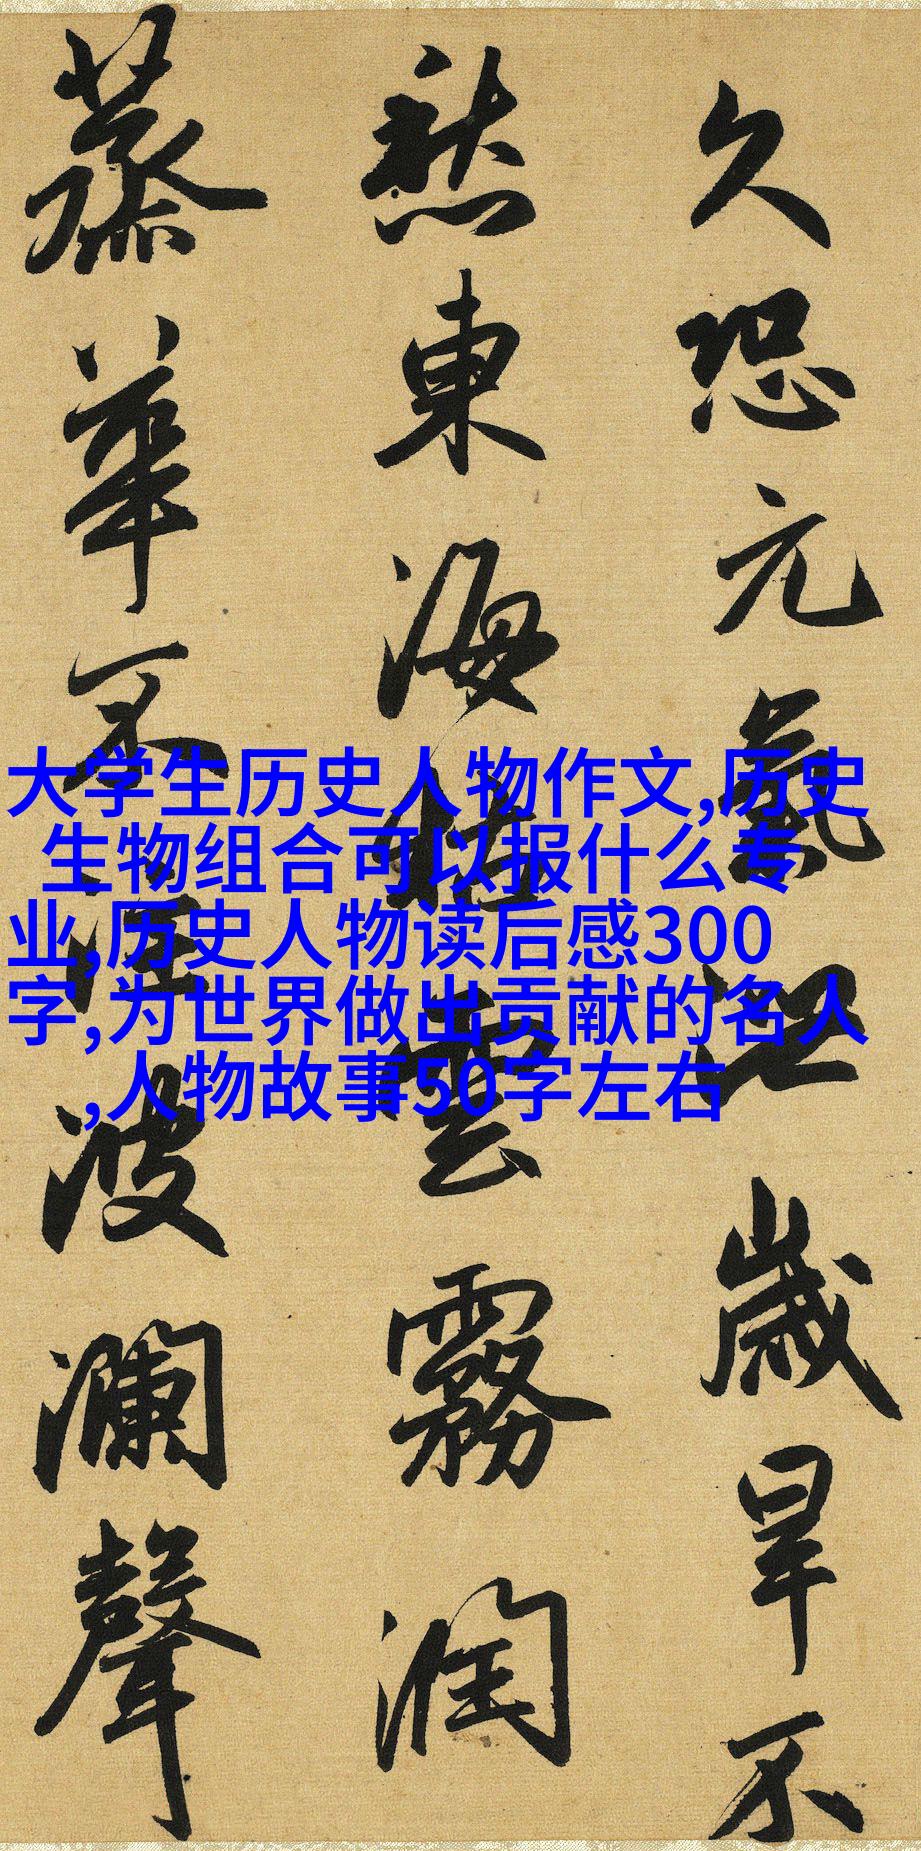 久恐元氣泄歲旱不
愁東海枯雲霧潤
蒸華不注波瀾聲
大学生历史人物作文,历史
生物组合可以报什么专
业,历史人物读后感300
字,为世界做出贡献的名人
,人物故事50字左右